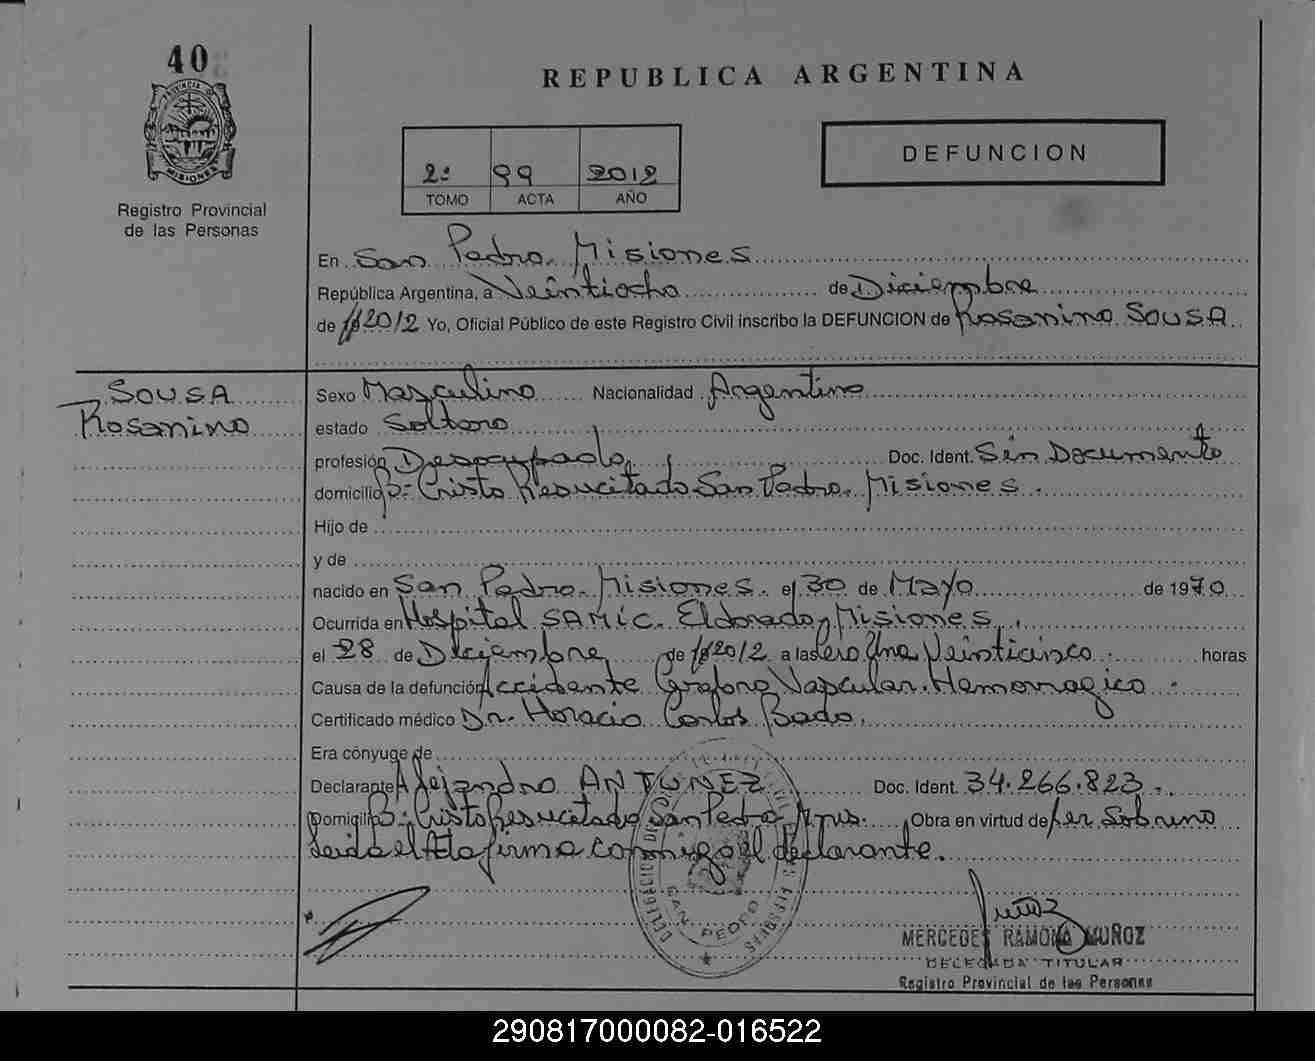 40
PROVINCIA DE
MISIONES
Registro Provincial
de las Personas
REPUBLICA ARGENTINA
2º 99 2012
TOMO ACTA AÑO
DEFUNCION
En San Pedro. Misiones
República Argentina, a Veintiocho de Diciembre
de 2012 Yo, Oficial Público de este Registro Civil inscribo la DEFUNCION de Rosanino SOUSA
SOUSA
Rosanino
Sexo Masculino Nacionalidad Argentina
estado Soltero
profesión Desocupado Doc. Ident. Sin Documento
domicilio Bº Cristo Resucitado San Pedro. Misiones.
Hijo de
y de
nacido en San Pedro. Misiones. el 30 de Mayo de 1970
Ocurrida en Hospital SAMIC. Eldorado, Misiones
el 28 de Diciembre de 2012 a las Cero Veinticinco horas
Causa de la defunción Accidente Cerebro Vascular Hemorragico
Certificado médico Dr. Horacio Carlos Bado.
Era cónyuge de
Declarante Alejandro ANTUNEZ Doc. Ident. 34.266.823.
Domicilio Bº Cristo Resucitado San Pedro Mnes. Obra en virtud de ser Sobrino
Leida el Acta firma conmigo el declarante.
SAN PEDRO
MERCEDES RAMONA MUÑOZ
DELEGADA TITULAR
Registro Provincial de las Personas
290817000082-016522